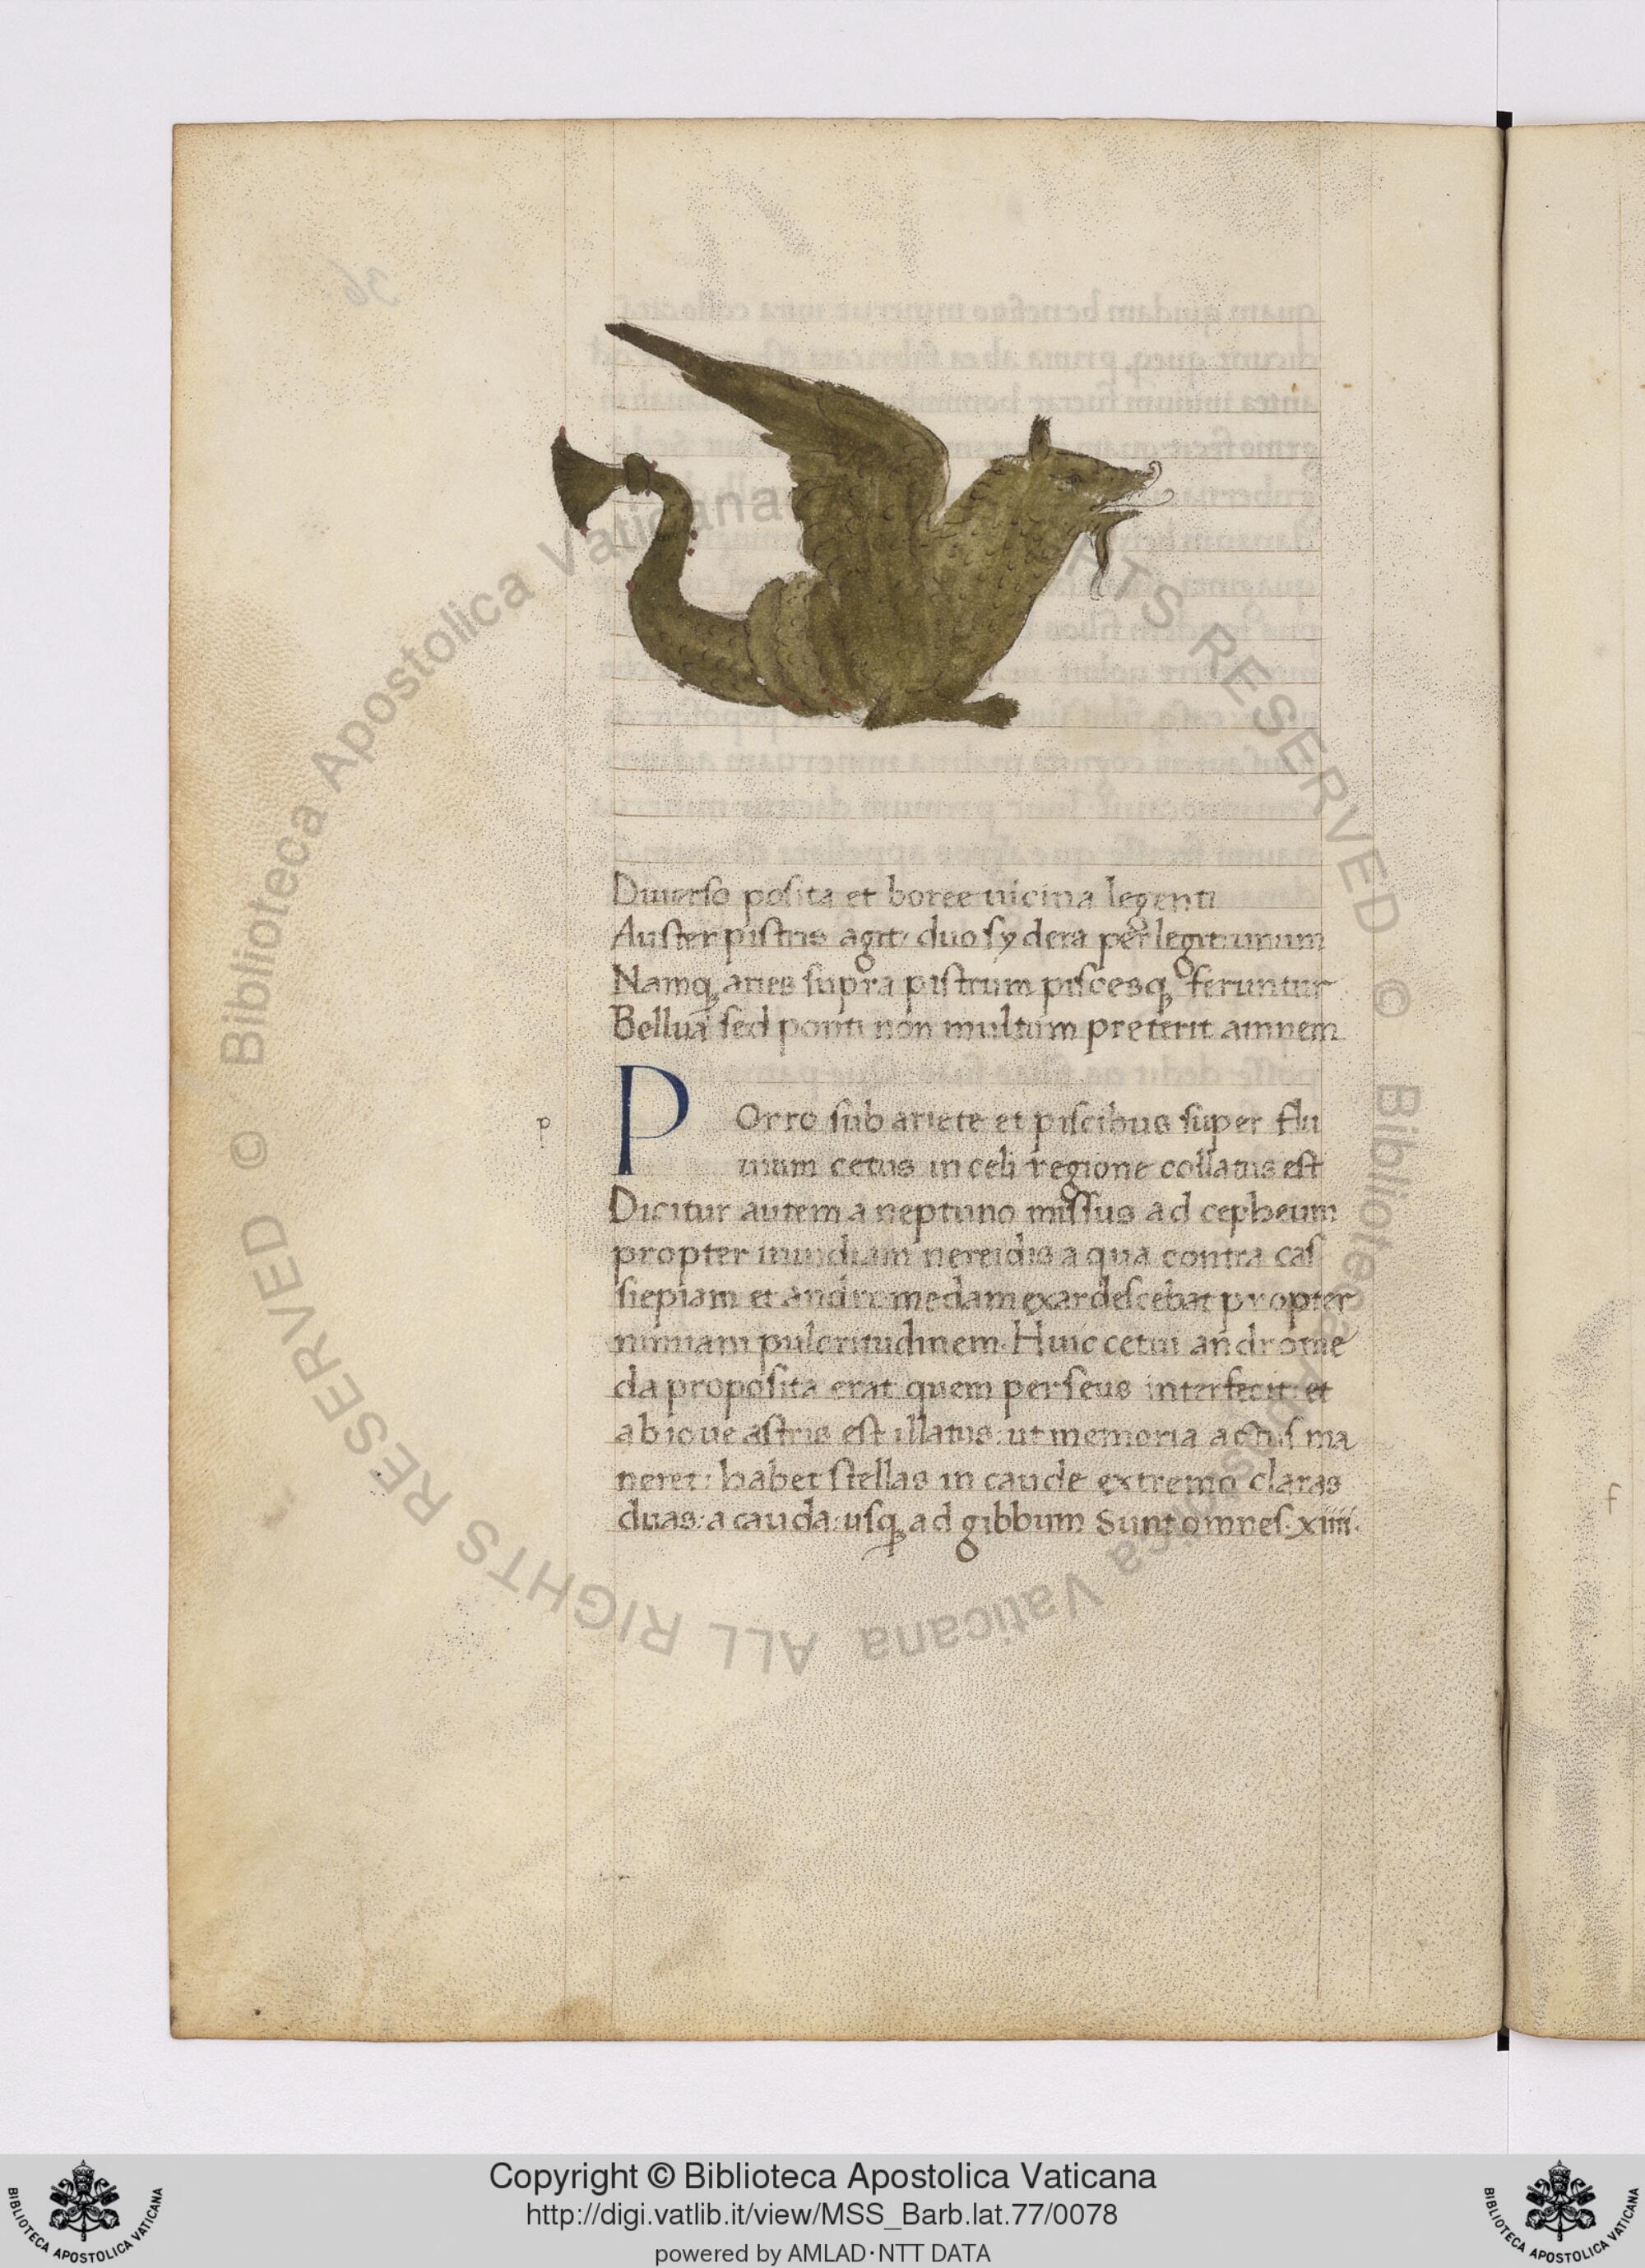 Diuerſo poſita et boree uicina legenti
Auſter piſtris agit: duo ſydera perlegit: unum
Namq; aries ſupra piſtrum piſcesq; feruntur
Bellua ſed ponti non multum preterit amnem
p
POrro ſub ariete et piſcibus ſuper flu
uium cetus in celi regione collatus eſt
Dicitur autem a neptuno miſſus ad cepheum
propter inuidiam nereidis a qua contra caſ
ſiepiam et andromedam exardeſcebat propter
nimiam pulcritudinem. Huic cetui androme
da propoſita erat quem perſeus interfecit: et
ab ioue aſtris eſt illatus: ut memoria actuſ ma
neret: habet ſtellas in caude extremo claras
duas: a cauda: uſq; ad gibbum Sunt omneſ. xiiii.
f
36
© Biblioteca Apostolica Vaticana ALL RIGHTS RESERVED
© Biblioteca Apostolica Vaticana ALL RIGHTS RESERVED
Copyright © Biblioteca Apostolica Vaticana
http://digi.vatlib.it/view/MSS_Barb.lat.77/0078
powered by AMLAD·NTT DATA
BIBLIOTECA APOSTOLICA VATICANA
BIBLIOTECA APOSTOLICA VATICANA